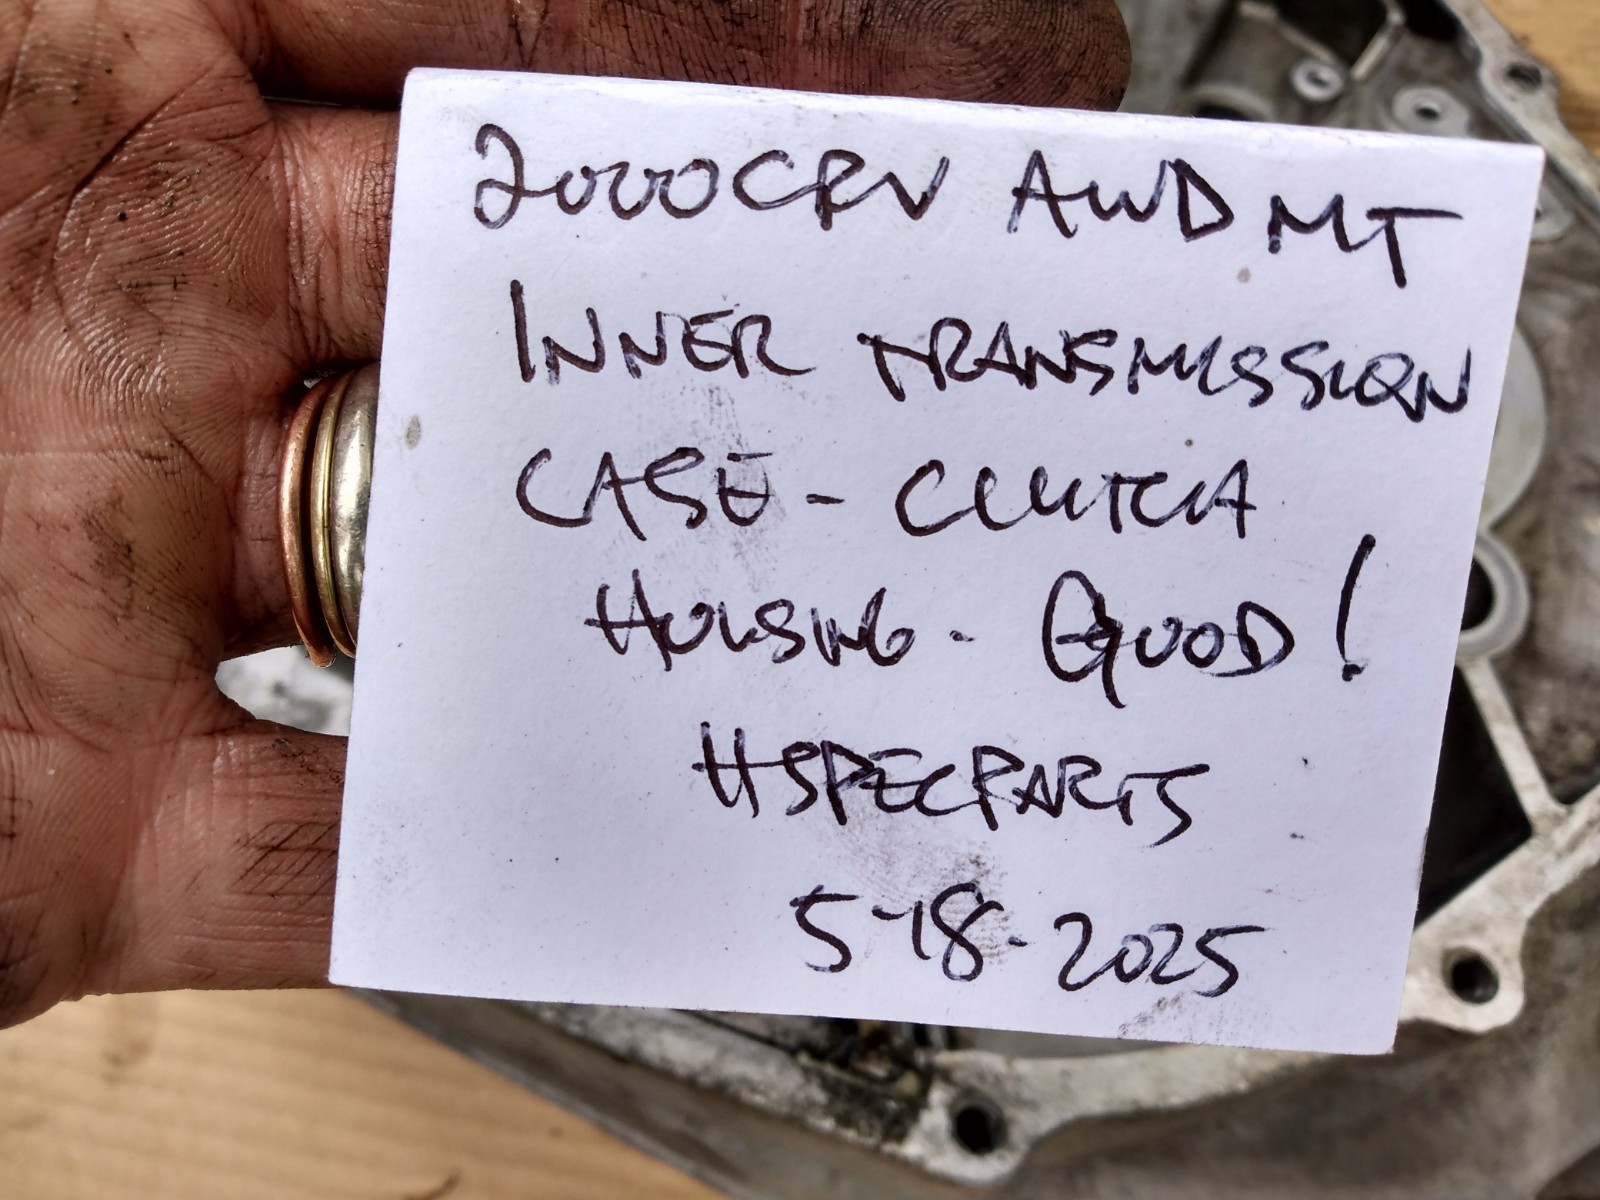 2000 CRV AWD MT
INNER TRANSMISSION
CASE - CLUTCH
HOUSING - GOOD!
HSPECPARTS
5-18-2025